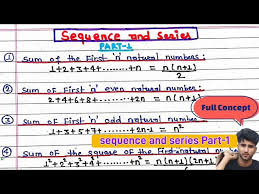 Sequence and Series
PART-1
① Sum of the First 'n' natural numbers:
1+2+3+4+........+n = n(n+1)/2
② Sum of First 'n' even natural number:
2+4+6+8+........+2n = n(n+1)
③ Sum of First 'n' odd natural number:
1+3+5+7+.......+2n-1 = n²
④ Sum of the square of the First natural n
1²+2²+3²+4²+........+n² = n(n+1)(2n+1)
Full Concept
sequence and series Part-1